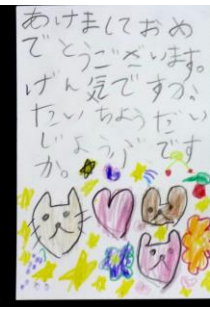 あけましておめ
でとうございます。
げん気ですか、
たいちょうだい
じょうぶです
か。